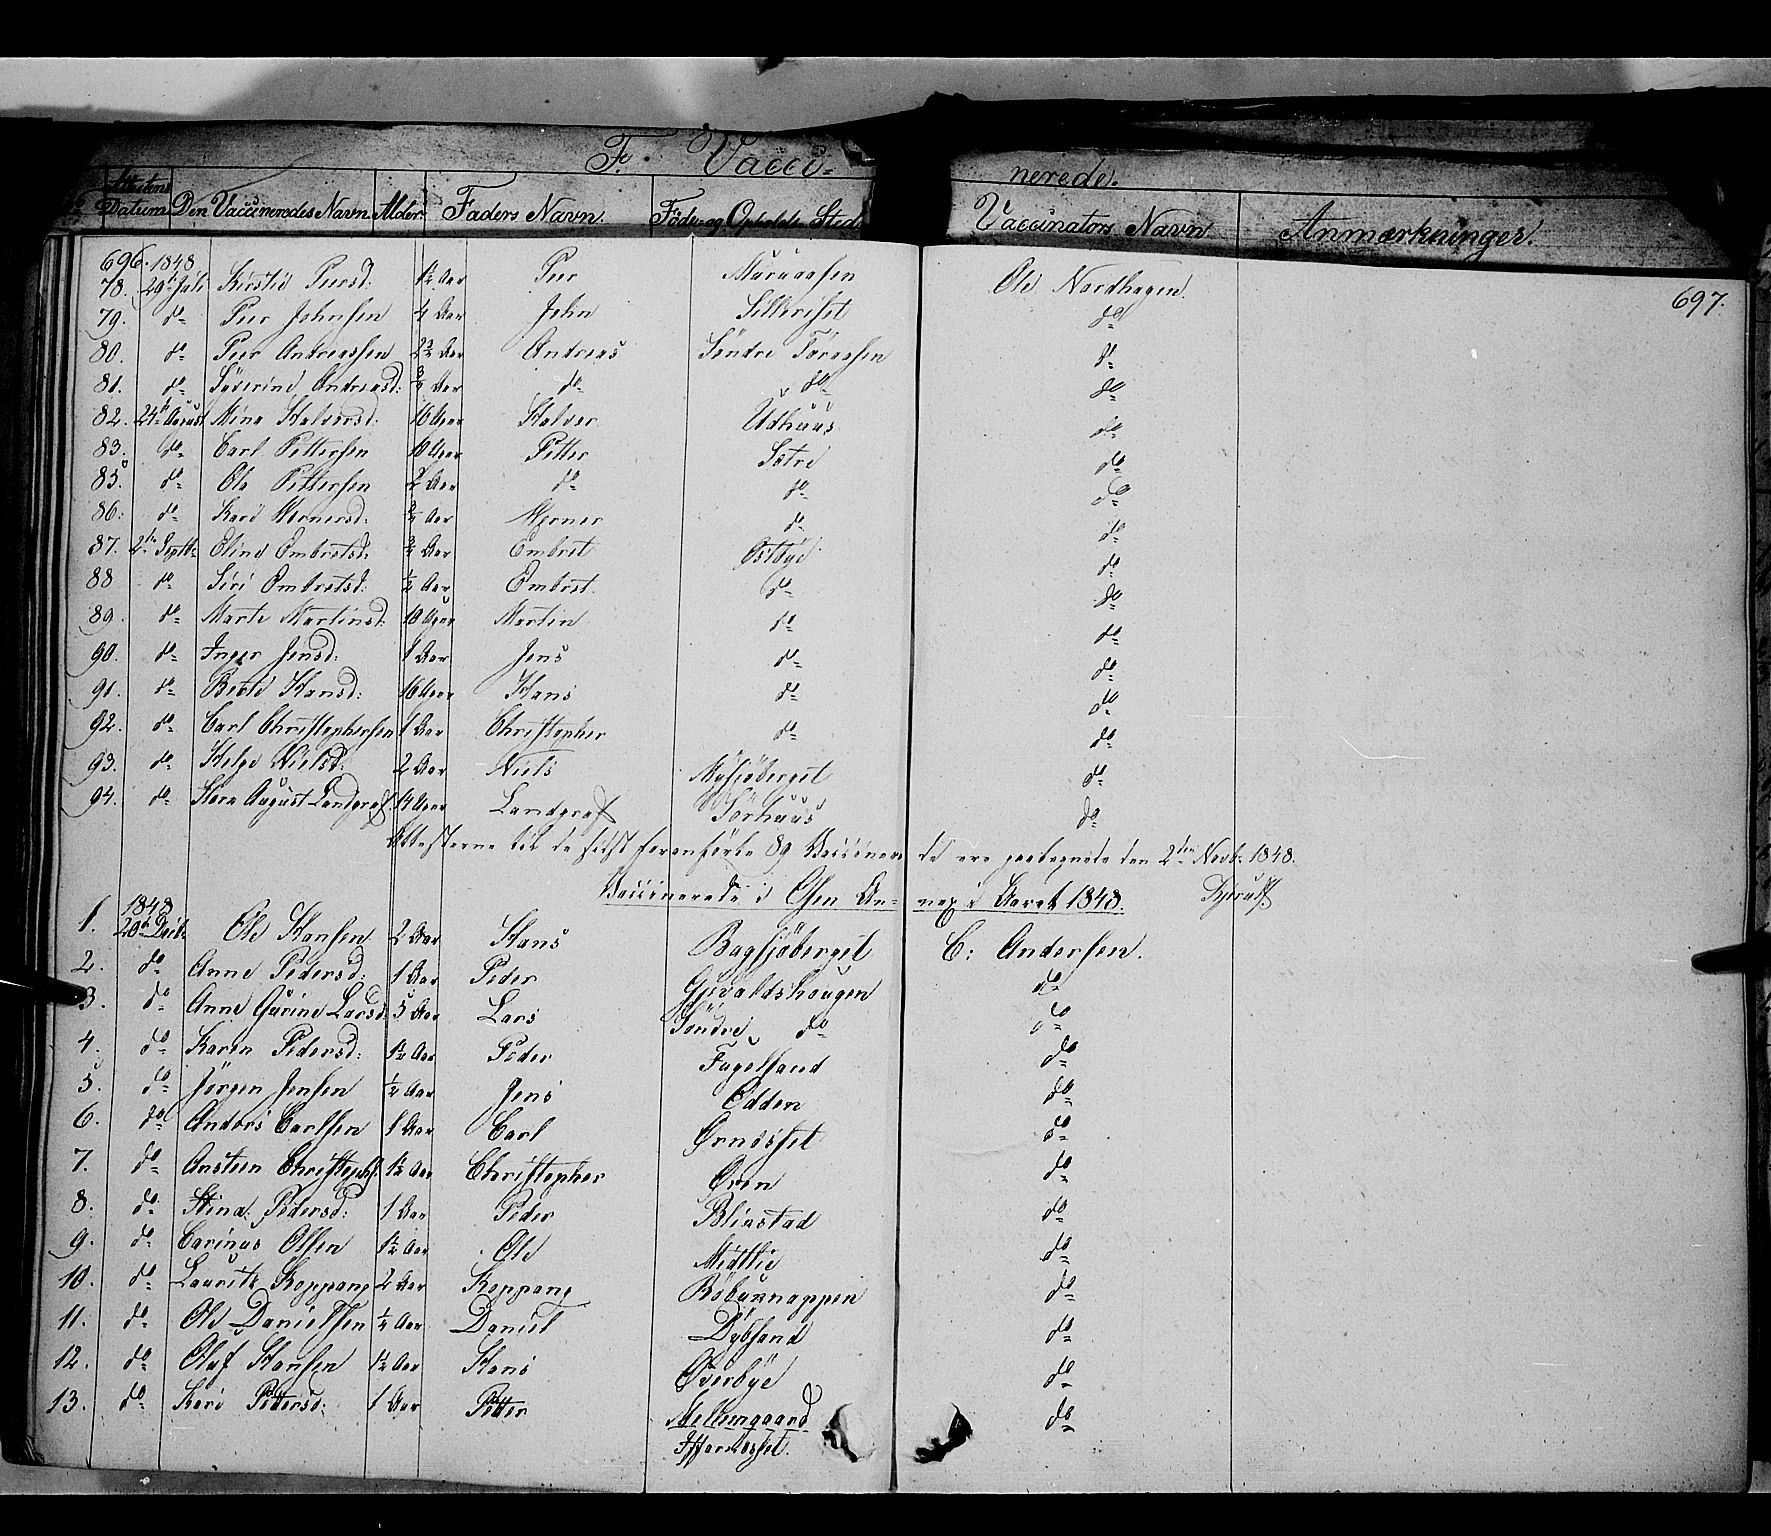 F. Vacci- nerede.
Attestens Datum Den Vaccineredes Navn. Alder. Faders Navn. Føde- og Opholds-Sted Vaccinators Navn. Anmærkninger.
696. 1848 697.
78. 29de Juli Kirstie Peersd: 1½ Aar Peer Ole Nordhagen.
79. do Peer Johnsen 4 Aar John do
80. do Peer Andreassen Aar Andreas Søndre do
81. do Severine Andreasd: ¾ Aar do do do
82. 24de August Mina Halvorsd: 16 Uger Halvor Udhuus do
83. do Carl Pettersen 16 Uger Petter Sætre do
85. do Ole Pettersen 2 Aar do do do
86. do Kari Wernersd: Aar Werner do do
87. 2den Septbr Eline Embretsd: Aar Embret Østbye do
88 do Siri Embretsd: ½ Aar Embret. do do
89. do Marte Martinsd: 10 Uger Martin do do
90. do Inger Jensd: 1 Aar Jens do do
91. do Berte Hansd: 16 Uger Hans do do
92. do Carl Christophersen 1 Aar Christopher do do
93. do Helge Nielsd: 2 Aar Niels Mysjøberget do
94. do August Landgraf Uger Landgraf Sørhuus do
Attesterne til de sidst foranførte 89 Vaccinerede ere paategnede den 2den Novbr. 1848.
Vaccinerede i Osen Annex i Aaret 1848. Kjerulf
1848
1. 20de Ole Hansen 2 Aar Hans Bagsjøberget C: Andersen.
2. do Anne Pedersd: 1 Aar Peder Gjevaldshaugen do
3. do Anne Gurine Larsd: 5 Aar Lars Søndre do do
4. do Karen Pedersd: 1½ Aar Peder Fugelsand do
5. do Jørgen Jensen ½ Aar Jens Odden do
6. do Anders Carlsen 1 Aar Carl Ørnesset do
7. do Ansteen Christophs: 1½ Aar Christopher Øren do
8. do Stina Pedersd: 1 Aar Peder Blinstad do
9. do Carinus Olsen 1½ Aar Ole Midtlie do
10. do Lauritz Koppang 2 Aar Koppang do
11. do Ole Danielsen ½ Aar Daniel Dybsand do
12. do Oluf Hansen 1½ Aar Hans Øverbye do
13. do Kari Pettersd: 1 Aar Petter Mellemgaard do